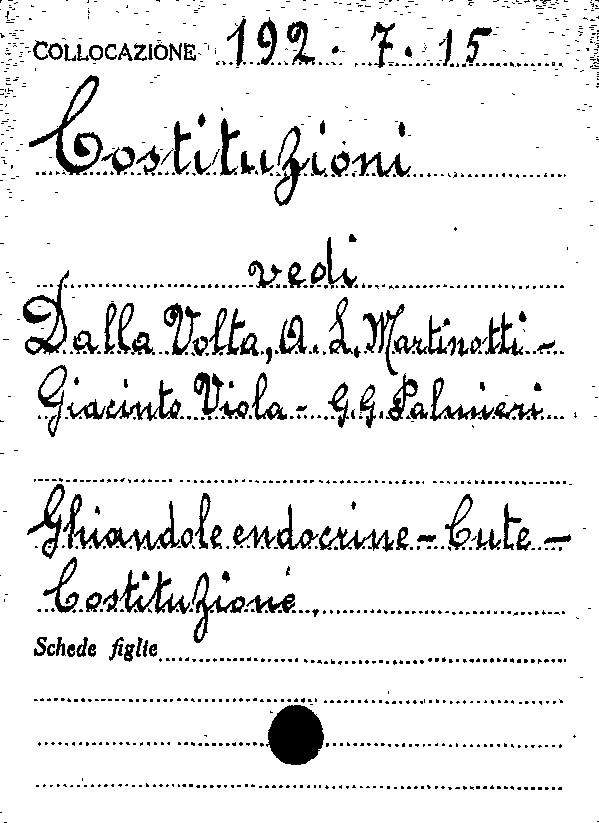 COLLOCAZIONE 192. 7. 15
Costituzioni
vedi
Dalla Volta, A. L. Martinotti -
Giacinto Viola - G.G. Palmieri
Ghiandole endocrine - Cute -
Costituzione.
Schede figlie